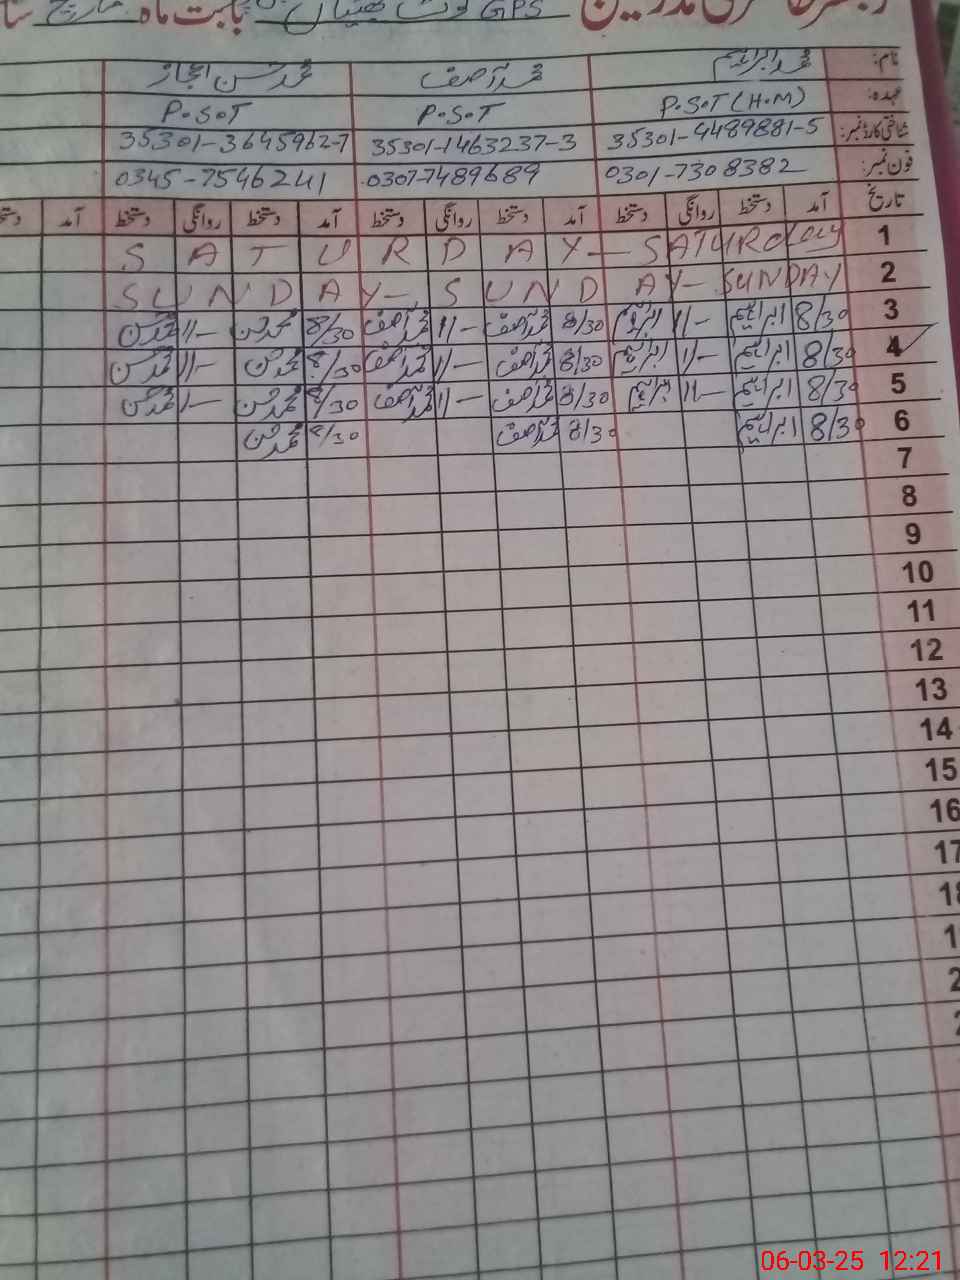 رجسٹر حاضری مدرسین GPS بابت ماہ مارچ
نام: محمد ابراہیم محمد آصف محمد حسن اعجاز
عہدہ: P.S.T (H.M) P.S.T P.S.T
شناختی کارڈ نمبر: 35301-4489881-5 35301-1463237-3 35301-3645962-7
فون نمبر: 0301-7308382 0307-7489689 0345-7546241
تاریخ آمد دستخط روانگی دستخط آمد دستخط روانگی دستخط آمد دستخط روانگی دستخط
1 SATURDAY - SATURday
2 SUNDAY - SUNDAY - SUNDAY
3 8/30 ابراہیم 11/- ابراہیم 8/30 محمد آصف 11/- محمد آصف 8/30 محمد حسن 11/- محمد حسن
4 8/30 ابراہیم 11/- ابراہیم 8/30 محمد آصف 11/- محمد آصف 8/30 محمد حسن 11/- محمد حسن
5 8/30 ابراہیم 11/- ابراہیم 8/30 محمد آصف 11/- محمد آصف 8/30 محمد حسن 11/- محمد حسن
6 8/30 ابراہیم 8/30 محمد آصف 8/30 محمد حسن
7
8
9
10
11
12
13
14
15
16
17
06-03-25 12:21